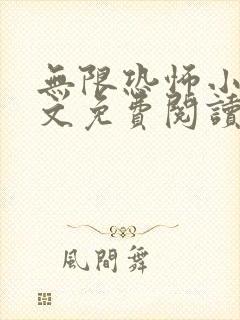 無限恐怖小
文免費閱讀
風間舞